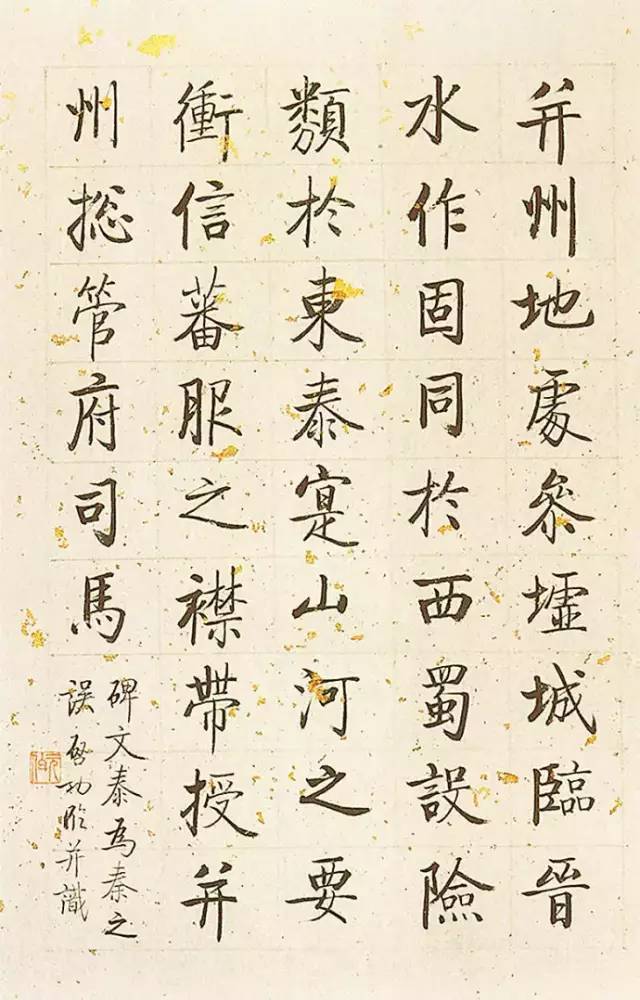 并州地處参墟城臨晉
水作固同於西蜀設險
類於東泰寔山河之要
衝信蕃服之襟帶授并
州揔管府司馬
碑文泰為秦之
誤啓功臨并識
元白